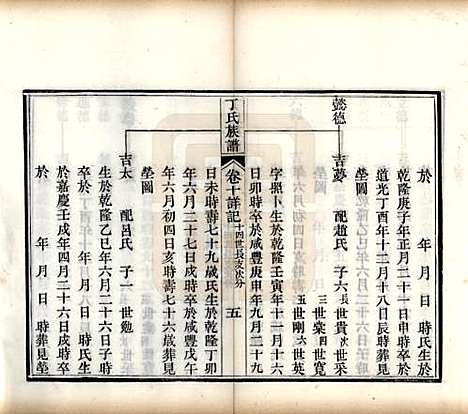 於　年　月　日　時氏生於
乾隆庚子年正月二十一日申時卒於
道光丁酉年十二月十八日辰時葬見
塋圖
懿德
吉夢　配趙氏　子六長世貴次世采
三世棠四世寬
五世剛六世英
字照卜生於乾隆壬寅年十一月十一
日卯時卒於咸豐庚申年九月二十九
丁氏族譜
卷十詳記
十四世長支次分
五
日未時壽七十九歲氏生於乾隆丁卯
年六月二十七日戌時卒於咸豐戊午
年六月初四日亥時壽七十六歲葬見
塋圖
吉太　配呂氏　子一世勉
生於乾隆乙巳年六月二十六日子時
卒於　年　月　日　時氏生
於嘉慶壬戌年四月二十六日戌時卒
於　年　月　日　時葬見塋